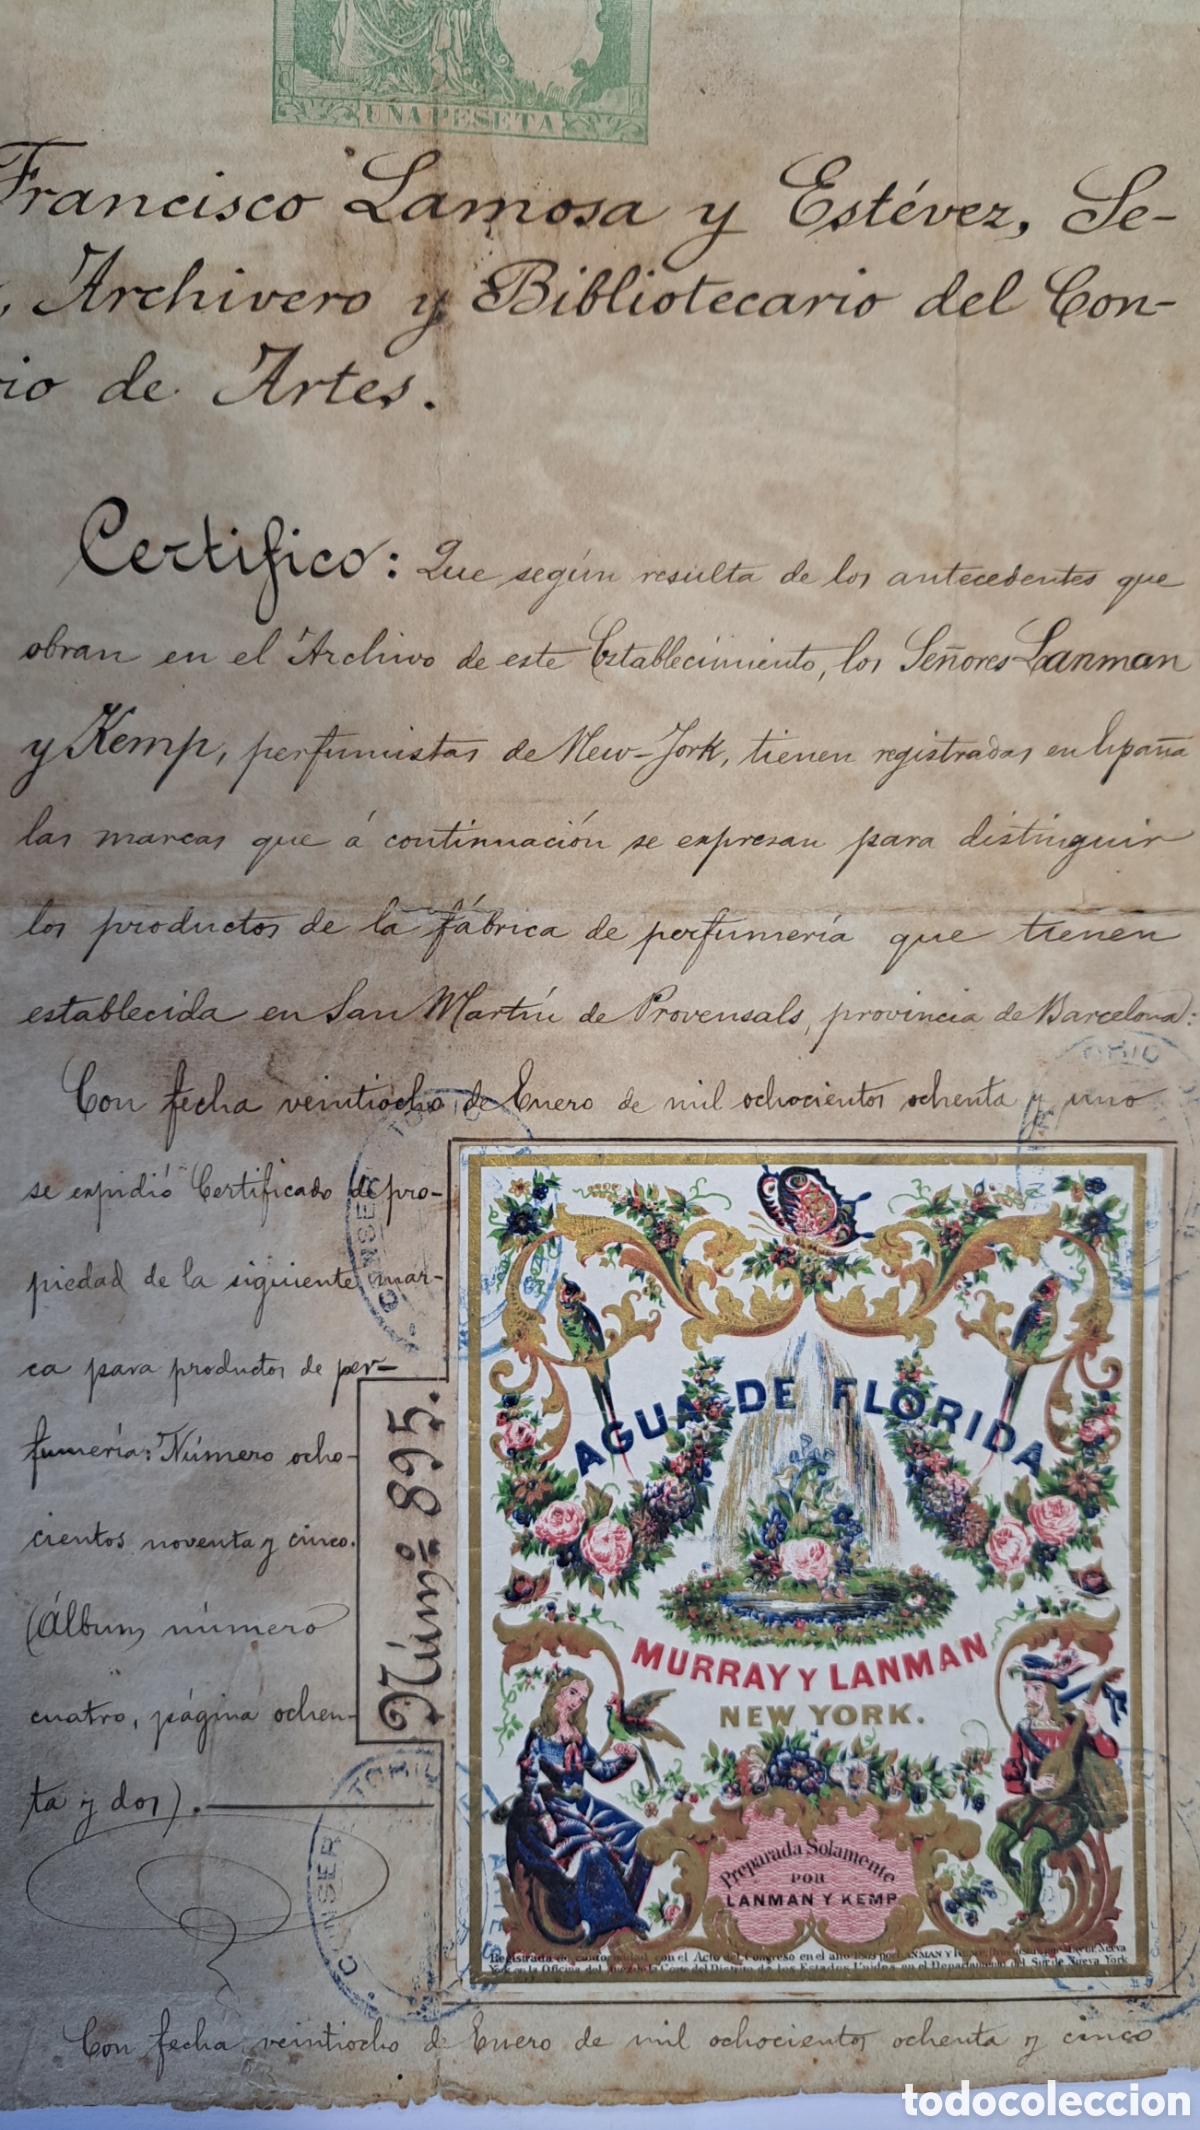 UNA PESETA
Francisco Lamosa y Estévez, Se-
, Archivero y Bibliotecario del Con-
rio de Artes.
Certifico: Que según resulta de los antecedentes que
obran en el Archivo de este Establecimiento, los Señores Lanman
y Kemp, perfumistas de New-York, tienen registradas en España
las marcas que á continuación se expresan para distinguir
los productos de la fábrica de perfumería que tienen
establecida en San Martín de Provensals, provincia de Barcelona:
Con fecha veintiocho de Enero de mil ochocientos ochenta y uno
se expidió Certificado de pro-
piedad de la siguiente mar-
ca para productos de per-
fumería: Número ocho-
cientos noventa y cinco.
(Álbum número
cuatro, página ochen-
ta y dos).
Núm.º 895.
AGUA DE FLORIDA
MURRAY Y LANMAN
NEW YORK.
Preparada Solamente
POR
LANMAN Y KEMP
Registrada de conformidad con el Acto del Congreso en el año
York en la Oficina del de la Corte del Distrito de los Estados Unidos en el Departamento del Sur de Nueva York
Con fecha veintiocho de Enero de mil ochocientos ochenta y cinco
todocoleccion